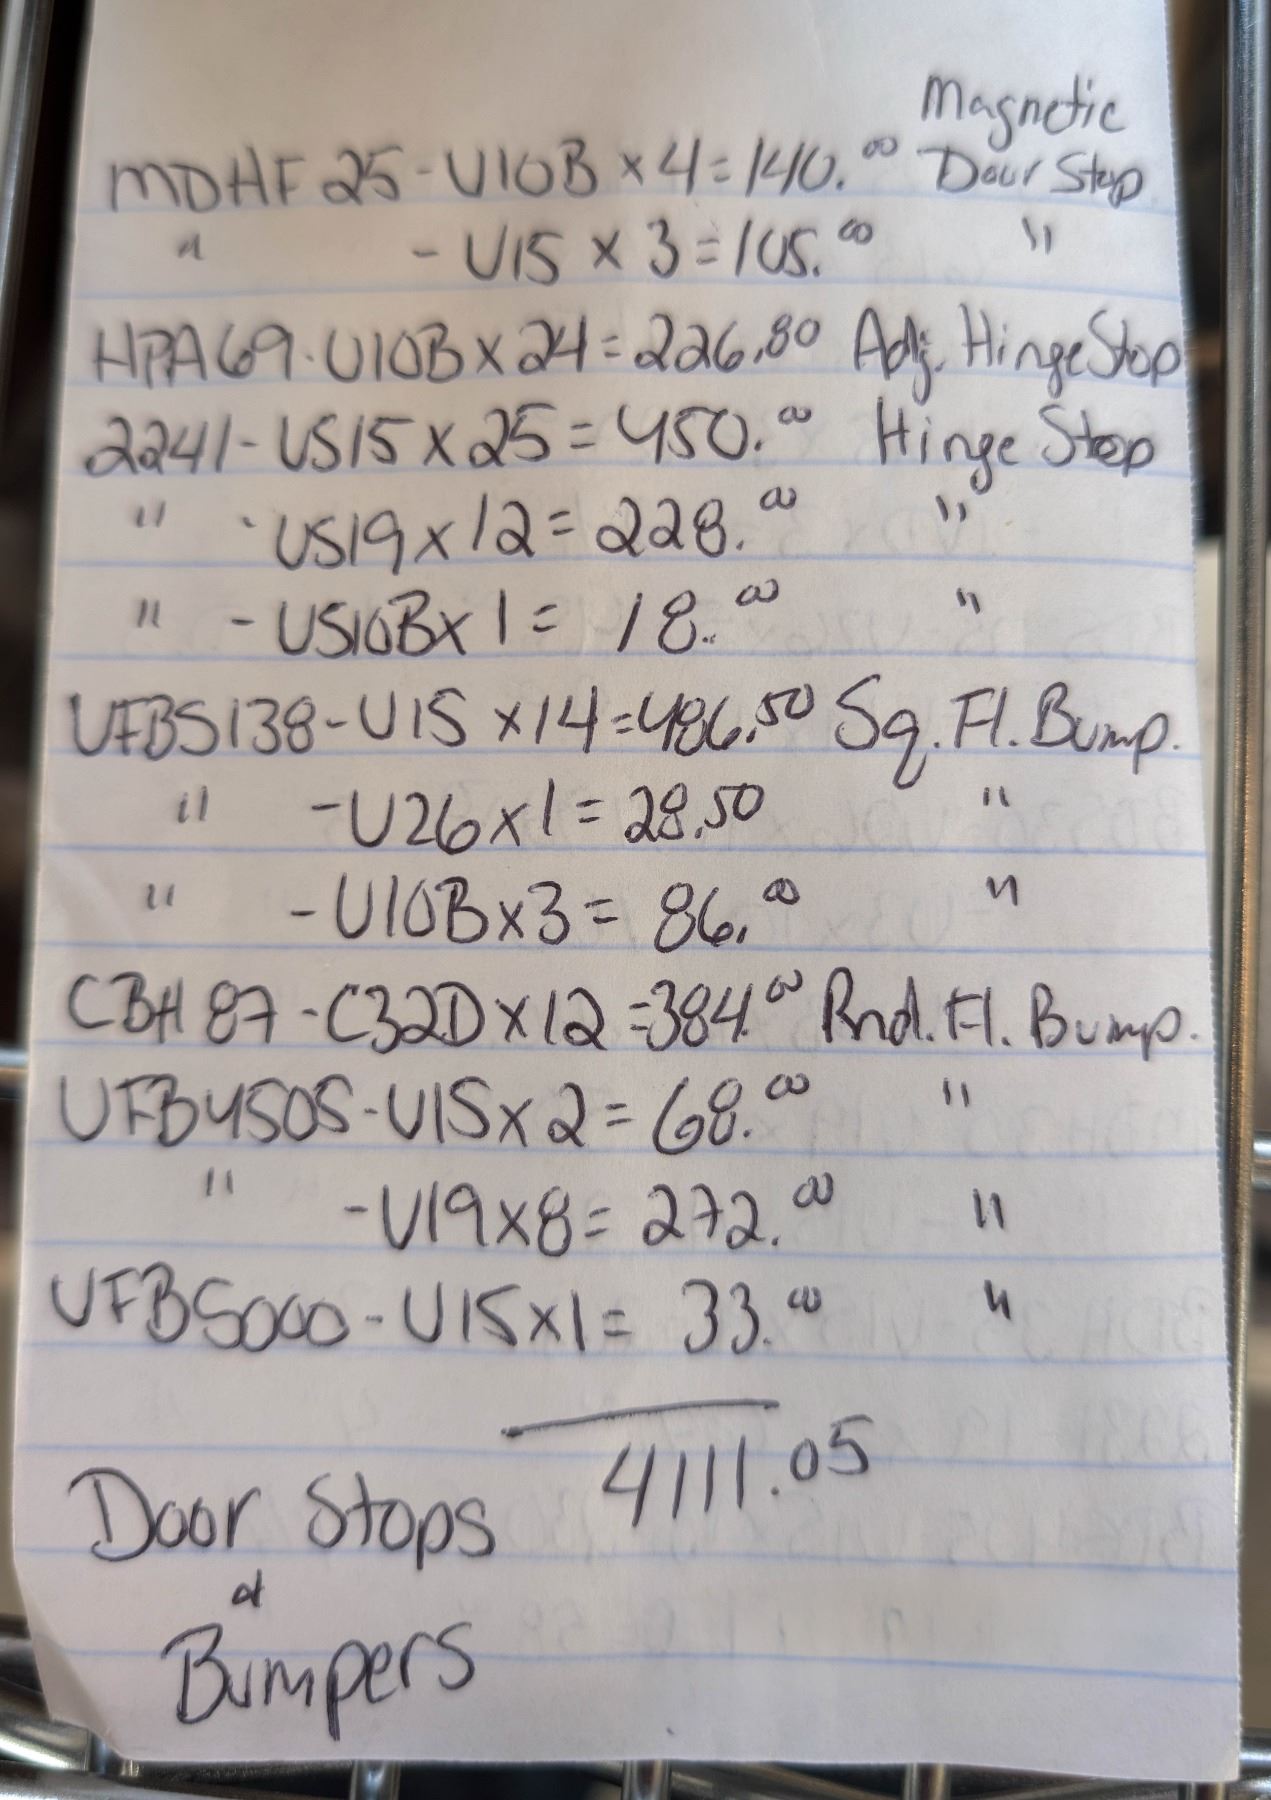 Magnetic
MDHF25-U10B x 4 = 140.00 Door Stop
" - U15 x 3 = 105.00 "
HPA69-U10B x 24 = 226.80 Adj. Hinge Stop
2241-US15 x 25 = 450.00 Hinge Stop
" -US19 x 12 = 228.00 "
" - US10B x 1 = 18.00 "
UFBS138-U15 x 14 = 486.50 Sq. Fl. Bump.
" -U26 x 1 = 28.50 "
" - U10B x 3 = 86.00 "
CBH87-C32D x 12 = 384.00 Rnd. Fl. Bump.
UFB4505-U15 x 2 = 68.00 "
" -U19 x 8 = 272.00 "
UFB5000-U15 x 1 = 33.00 "
4111.05
Door Stops
&
Bumpers